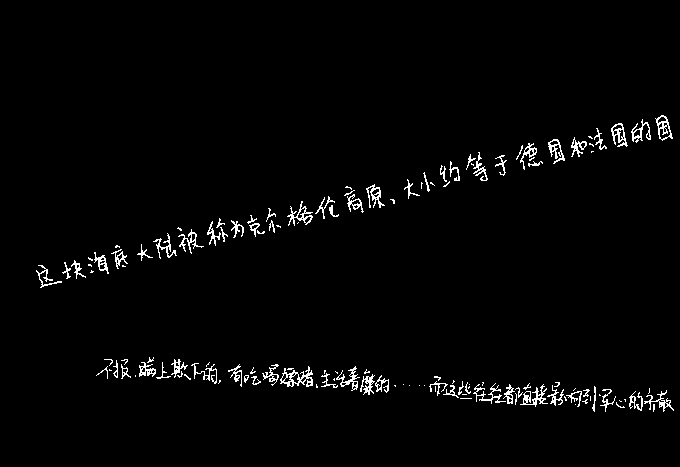 这块海底大陆被称为克尔格伦高原、大小约等于德国和法国的国
不报.瞒上欺下的,有吃喝嫖赌、生活奢靡的……而这些往往都直接影响到军心的齐散